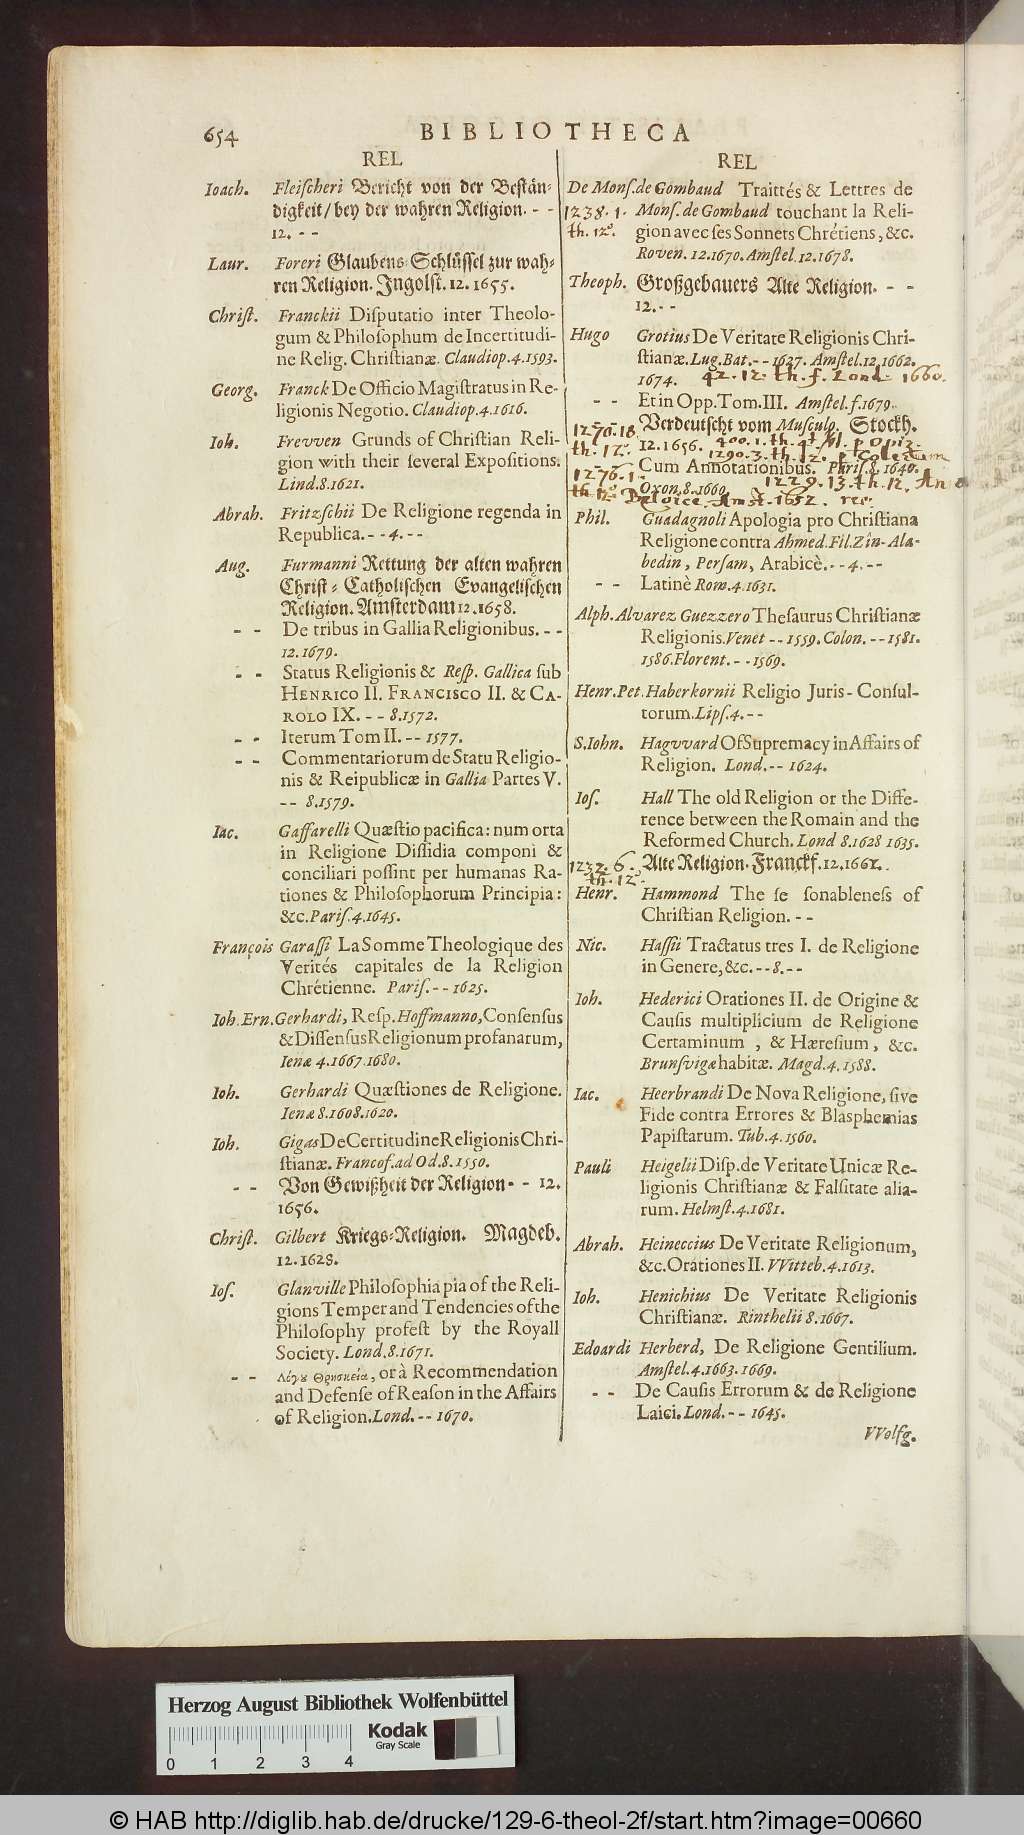 654
BIBLIOTHECA
REL
Ioach. Fleiſcheri Bericht von der Beſtän-
digkeit/bey der wahren Religion. - -
12. - -
Laur. Foreri Glaubens-Schlüſſel zur wah-
ren Religion. Ingolſt. 12. 1655.
Chriſt. Franckii Diſputatio inter Theolo-
gum & Philoſophum de Incertitudi-
ne Relig. Chriſtianæ. Claudiop. 4. 1593.
Georg. Franck De Officio Magiſtratus in Re-
ligionis Negotio. Claudiop. 4. 1616.
Ioh. Frevven Grunds of Chriſtian Reli-
gion with their ſeveral Expoſitions.
Lind. 8. 1621.
Abrah. Fritzſchii De Religione regenda in
Republica. - - 4. - -
Aug. Furmanni Rettung der alten wahren
Chriſt-Catholiſchen Evangeliſchen
Religion. Amſterdam 12. 1658.
- - De tribus in Gallia Religionibus. - -
12. 1679.
- - Status Religionis & Reſp. Gallica ſub
HENRICO II. FRANCISCO II. & CA-
ROLO IX. - - 8. 1572.
- - Iterum Tom II. - - 1577.
- - Commentariorum de Statu Religio-
nis & Reipublicæ in Gallia Partes V.
- - 8. 1579.
Iac. Gaffarelli Quæſtio pacifica: num orta
in Religione Diſſidia componi &
conciliari poſſint per humanas Ra-
tiones & Philoſophorum Principia:
&c. Pariſ. 4. 1645.
François Garaſſi La Somme Theologique des
Verités capitales de la Religion
Chrétienne. Pariſ. - - 1625.
Ioh. Ern. Gerhardi, Reſp. Hoffmanno, Conſenſus
& Diſſenſus Religionum profanarum,
Ienæ 4. 1667. 1680.
Ioh. Gerhardi Quæſtiones de Religione.
Ienæ 8. 1608. 1620.
Ioh. Gigas De Certitudine Religionis Chri-
ſtianæ. Francof. ad Od. 8. 1550.
- - Von Gewißheit der Religion - - 12.
1656.
Chriſt. Gilbert Kriegs-Religion. Magdeb.
12. 1628.
Ioſ. Glanville Philoſophia pia of the Reli-
gions Temper and Tendencies of the
Philoſophy profeſt by the Royall
Society. Lond. 8. 1671.
- - Λόγου Θρησκεία, or à Recommendation
and Defenſe of Reaſon in the Affairs
of Religion. Lond. - - 1670.
REL
De Monſ. de Gombaud Traittés & Lettres de
1238. 1. Monſ. de Gombaud touchant la Reli-
th. 12°. gion avec ſes Sonnets Chrétiens, &c.
Roven. 12. 1670. Amſtel. 12. 1678.
Theoph. Großgebauers Alte Religion. - -
12. - -
Hugo Grotius De Veritate Religionis Chri-
ſtianæ. Lug. Bat. - - 1627. Amſtel. 12. 1662.
1674. 42. 12. th. f. Lond. 1660.
- - Et in Opp. Tom. III. Amſtel. f. 1679.
1270. 18 Verdeutſcht vom Muſculp. Stockh.
th. 12°. 12. 1656. 400. 1. th. 4° Opiz.
1290. 3. th. 12.
Cum Annotationibus. Pariſ. 8. 1640.
1276. 1. Oxon. 8. 1660. 1229. 13. th. 12.
th. 12° Amſt. 1652.
Phil. Guadagnoli Apologia pro Chriſtiana
Religione contra Ahmed. Fil. Zin-Ala-
bedin, Perſam, Arabicè. - - 4. - -
- - Latinè Rom. 4. 1631.
Alph. Alvarez Guezzero Theſaurus Chriſtianæ
Religionis. Venet - - 1559. Colon. - - 1581.
1586. Florent. - - 1569.
Henr. Pet. Haberkornii Religio Juris-Conſul-
torum. Lipſ. 4. - -
S. Iohn. Hagvvard Of Supremacy in Affairs of
Religion. Lond. - - 1624.
Ioſ. Hall The old Religion or the Diffe-
rence between the Romain and the
Reformed Church. Lond 8. 1628 1635.
1232. 6. Alte Religion. Franckf. 12. 1661.
th. 12°
Henr. Hammond The ſe ſonableneſs of
Chriſtian Religion. - -
Nic. Haſſii Tractatus tres I. de Religione
in Genere, &c. - - 8. - -
Ioh. Hederici Orationes II. de Origine &
Cauſis multiplicium de Religione
Certaminum, & Hæreſium, &c.
Brunſvigæ habitæ. Magd. 4. 1588.
Iac. Heerbrandi De Nova Religione, ſive
Fide contra Errores & Blaſphemias
Papiſtarum. Tub. 4. 1560.
Pauli Heigelii Diſp. de Veritate Unicæ Re-
ligionis Chriſtianæ & Falſitate alia-
rum. Helmſt. 4. 1681.
Abrah. Heineccius De Veritate Religionum,
&c. Orationes II. VVitteb. 4. 1613.
Ioh. Henichius De Veritate Religionis
Chriſtianæ. Rinthelii 8. 1667.
Edoardi Herberd, De Religione Gentilium.
Amſtel. 4. 1663. 1669.
- - De Cauſis Errorum & de Religione
Laici. Lond. - - 1645.
VVolfg.
Herzog August Bibliothek Wolfenbüttel
Kodak
Gray Scale
0 1 2 3 4
© HAB http://diglib.hab.de/drucke/129-6-theol-2f/start.htm?image=00660